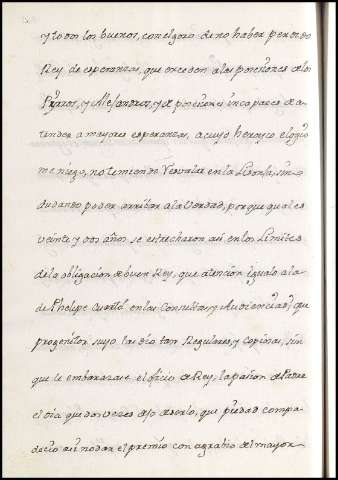 y todos los buenos, con el gozo de no haber perdido
Rey de esperanzas, que exceden a las poseciones de los
Pyrros, y Alejandros, y de poseciones incapaces de a-
tender a mayores esperanzas, a cuyo heroyco elogio
me niego, no temiendo revalar en la lisonja, sino
dudando poder arribar a la verdad, porque qual es
veinte y dos años se estrecharon asi en los Limites
de la obligacion de buen Rey, que atencion igualo a la
de Phelipe Cuarto en las Consultas, y Audiencias, que
progenitor suyo las dio tan Regulares, y copiosas, sin
que le embarazase el oficio de Rey, la pasion de Padre
el dia que dos vezes dejo de serlo, que piedad compa-
decio asi no dar el premio con agrabio del mayor